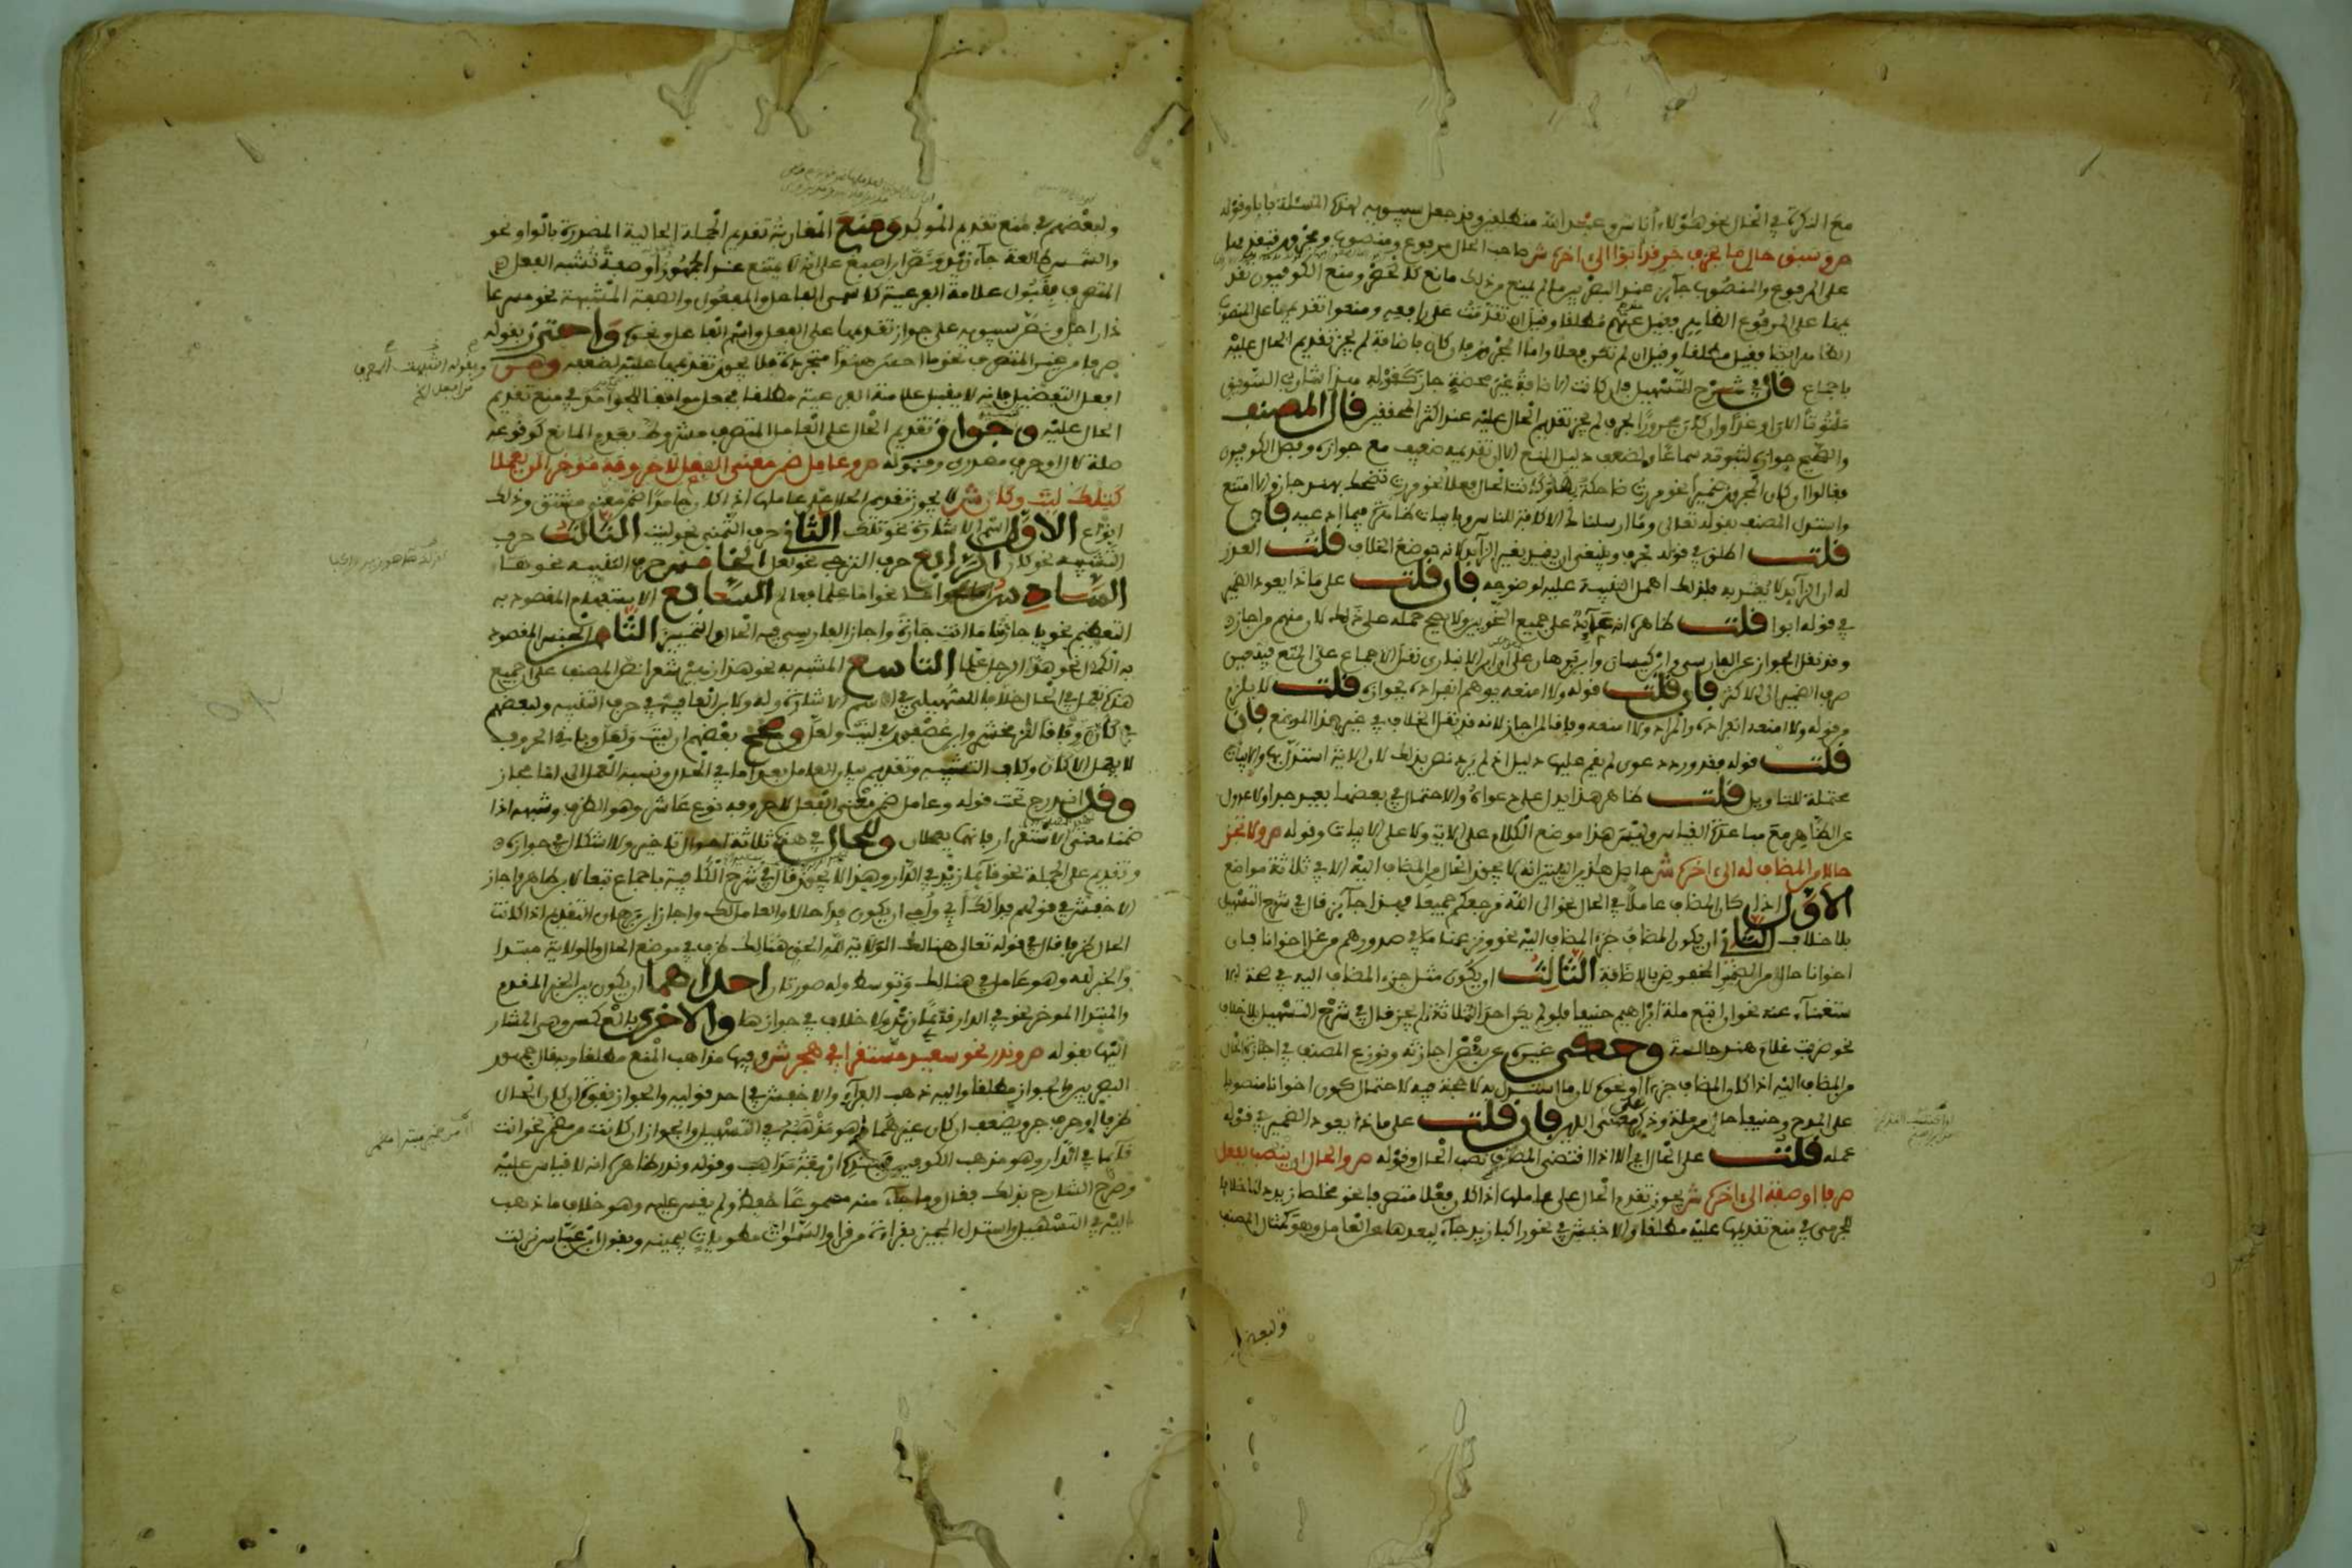 مع النكرة في الحال نحو هؤلاء أناس وعبد الله منطلقين وقد جعل سيبويه لهذه المسئلة بابا وقوله
ص وسبق حال ما بحرف جر قد أبوا الى اخره ش صاحب الحال مرفوع ومنصوب ومجرور فتقديمها
على المرفوع والمنصوب جائز عند البصريين ما لم يمنع من ذلك مانع كالحصر ومنع الكوفيون تقد
يمها على المرفوع الظاهر وقيل عنهم مطلقا وقيل ان تقدمت على رافعه ومنعوا تقديمها على المنصوب
الظاهر ايضا فقيل مطلقا وقيل ان لم تكن فعلا واما المجرور فان كان باضافة لم يجز تقديم الحال عليه
باجماع قال في شرح التسهيل فان كانت الاضافة غير محضة جاز كقوله هذا شارب السويق
ملتوتا الان او غدا وان كان مجرورا بحرف لم يجز تقديم الحال عليه عند اكثر المحققين قال المصنف
والصحيح جوازه لثبوته سماعا ولضعف دليل المنع الا ان تقديمه ضعيف مع جوازه وفصل الكوفيون
فقالوا ان كان المجرور ضميرا نحو مررت ضاحكة بها او كانت الحال فعلا نحو مررت تضحك بهند جاز والا امتنع
واستدل المصنف بقوله تعالى وما ارسلناك الا كافة للناس وبابيات ظاهرة فيما ادعيه فان
قلت اطلق في قوله بحرف وينبغي ان يقيد بغير الزايد لانه موضع الخلاف قلت العذر
له ان الزايد لا يعتد به فلذلك اهمل التنبيه عليه لوضوحه فان قلت على ماذا يعود الضمير
في قوله ابوا قلت ظاهره انه عائد على جميع النحويين ولا يصح حمله على ذلك لان منهم من اجازه
وقد نقل الجواز عن الفارسي وابن كيسان وابن برهان على ان ابن الانباري نقل الاجماع على المنع فيتعين
صرف الضمير الى الاكثر فان قلت قوله ولا امنعه يوهم انفراده بجوازه قلت لا يلزم
من قوله ولا امنعه انفراده والمراد ولا امنعه وفاقا لمن اجاز لانه قد نقل الخلاف في غير هذا الموضع فان
قلت قوله فقد ورد دعوى لم يقم عليها دليل اذ لم يرد نص بذلك لان الاية استدل بها والابيات
محتملة للتاويل قلت ظاهر هذا يدل على دعواه والاحتمال في بعضها بعيد جدا ولا عدول
عن الظاهر مع مساعدة القياس وليس هذا موضع الكلام على الاية ولا على الابيات وقوله ص ولا تجز
حالا من المضاف له الى اخره ش حاصل هذين البيتين انه لا يجوز الحال من المضاف اليه الا في ثلاثة مواضع
الاول اذا كان المضاف عاملا في الحال نحو الى الله مرجعكم جميعا فهذا جائز قال في شرح التسهيل
بلا خلاف الثاني ان يكون المضاف جزء المضاف اليه نحو ونزعنا ما في صدورهم من غل اخوانا فان
اخوانا حال من الضمير المخفوض بالاضافة الثالث ان يكون مثل جزء المضاف اليه في صحة الا
ستغناء عنه نحو ان اتبع ملة ابراهيم حنيفا فلو لم يكن احد الثلاثة لم يجز قال في شرح التسهيل بلا خلاف
نحو ضربت غلام هند جالسة وحكى غيره عن بعض اجازته ونوزع المصنف في اجازة الحال
من المضاف اليه اذا كان المضاف جزءا او نحوه لان ما استدل به لا حجة فيه لاحتمال كون اخوانا منصوبا
على المدح وحنيفا حال من ملة وذكر على معنى الدين فان قلت على ماذا يعود الضمير في قوله
عمله قلت على الحال اي الا اذا اقتضى المضاف نصب الحال وقوله ص والحال ان ينصب بفعل
صرفا او صفة الى اخره ش يجوز تقديم الحال على عاملها اذا كان فعلا متصرفا نحو مخلصا زيد دعا خلافا
للجرمي في منع تقديمها عليه مطلقا وللاخفش في نحو راكبا زيد جاء لبعدها عن العامل وهو كمثال المصنف
ولبعضهم
ولبعضهم في منع تقديم المؤكدة ومنع المغاربة تقديم الجملة الحالية المصدرة بالواو نحو
والشمس طالعة جاء زيد ونص ابن اصبغ على انه لا يمتنع عند الجمهور او صفة تشبه الفعل
المتصرف بقبول علامة الفرعية كاسمي الفاعل والمفعول والصفة المشبهة نحو مسرعا
ذا راحل ونص سيبويه على جواز تقديمها على الفعل واسم الفاعل ونحوه واحترز بقوله
صرفا من غير المتصرف نحو ما احسن هندا متجردة فلا يجوز تقديمها عليه لضعفه وهي
افعل التفضيل فانه لا يقبل علامة الفرعية مطلقا فجعل موافقا للجوامد في منع تقديم
الحال عليه وجواز تقديم الحال على العامل المتصرف مشروط بعدم المانع كوقوعه
صلة لال او حرف مصدري وقوله ص وعامل ضمن معنى الفعل لا حروفه مؤخرا لن يعملا
كتلك ليت وكأن ش لا يجوز تقديم الحال على عاملها اذا كان جامدا ضمن معنى مشتق وذلك
انواع الاول اسم الاشارة نحو تلك الثاني حرف التمني نحو ليت الثالث حرف
التشبيه نحو كان الرابع حرف الترجي نحو لعل الخامس حرف التنبيه نحو ها
السادس اما نحو اما علما فعالم السابع الاستفهام المقصود به
التعظيم نحو يا جارتا ما انت جارة واجاز الفارسي فيه الحال والتمييز الثامن الجنس المقصود
به الكمال نحو هو الرجل علما التاسع المشبه به نحو هذا زهير شعرا نص المصنف على ان جميع
هذه تعمل في الحال خلافا للسهيلي في اسم الاشارة وله ولابن ابي العافية في حرف التنبيه ولبعضهم
في كان وفاقا للزمخشري وابن عصفور في ليت ولعل وصحح بعضهم ان ليت ولعل وباقي الحروف
لا يعمل الا كان وكاف التشبيه
وقد اندرج تحت قوله وعامل ضمن معنى الفعل لا حروفه نوع عاشر وهو الظرف وشبهه اذا
ضمنا معنى الاستقرار فانهما يعملان وللحال في هذه ثلاثة احوال تاخير ولا اشكال في جوازه
وتقديم على الجملة نحو قائما زيد في الدار وهذا لا يجوز قال في شرح الكافية باجماع تبعا لابن طاهر واجاز
الاخفش في قولهم فداء لك ابي وامي ان يكون فداء حالا والعامل لك واجاز ابن برهان التقديم اذا كانت
الحال ظرفا قال في قوله تعالى هنالك الولاية لله الحق هنالك ظرف في موضع الحال والولاية مبتدا
والخبر لله وهو عامل في هنالك وتوسط وله صورتان احداهما ان يكون بين الخبر المقدم
والمبتدا الموخر نحو في الدار قائما زيد ولا خلاف في جوازها والاخرى بالعكس وهي المشار
اليها بقوله ص وندر نحو سعيد مستقرا في هجر ش وفيها مذاهب المنع مطلقا وبه قال جمهور
البصريين والجواز مطلقا واليه ذهب الفراء والاخفش في احد قوليه والجواز بقوة ان كان الحال
ظرفا او حرف جر ويضعف ان كان غيرهما وهو مذهبه في التسهيل والجواز ان كانت من مضمر نحو انت
قائما في الدار وهو مذهب الكوفيين فهذه اربعة مذاهب وقوله وندر ظاهره انه لا يقاس عليه
وصرح الشارح بذلك فقال وما جاء منه مسموعا حفظ ولم يقس عليه وهو خلاف ما ذهب
اليه في التسهيل واستدل المجيز بقراءة من قرا والسموات مطويات بيمينه وبقول ابن عباس نزلت